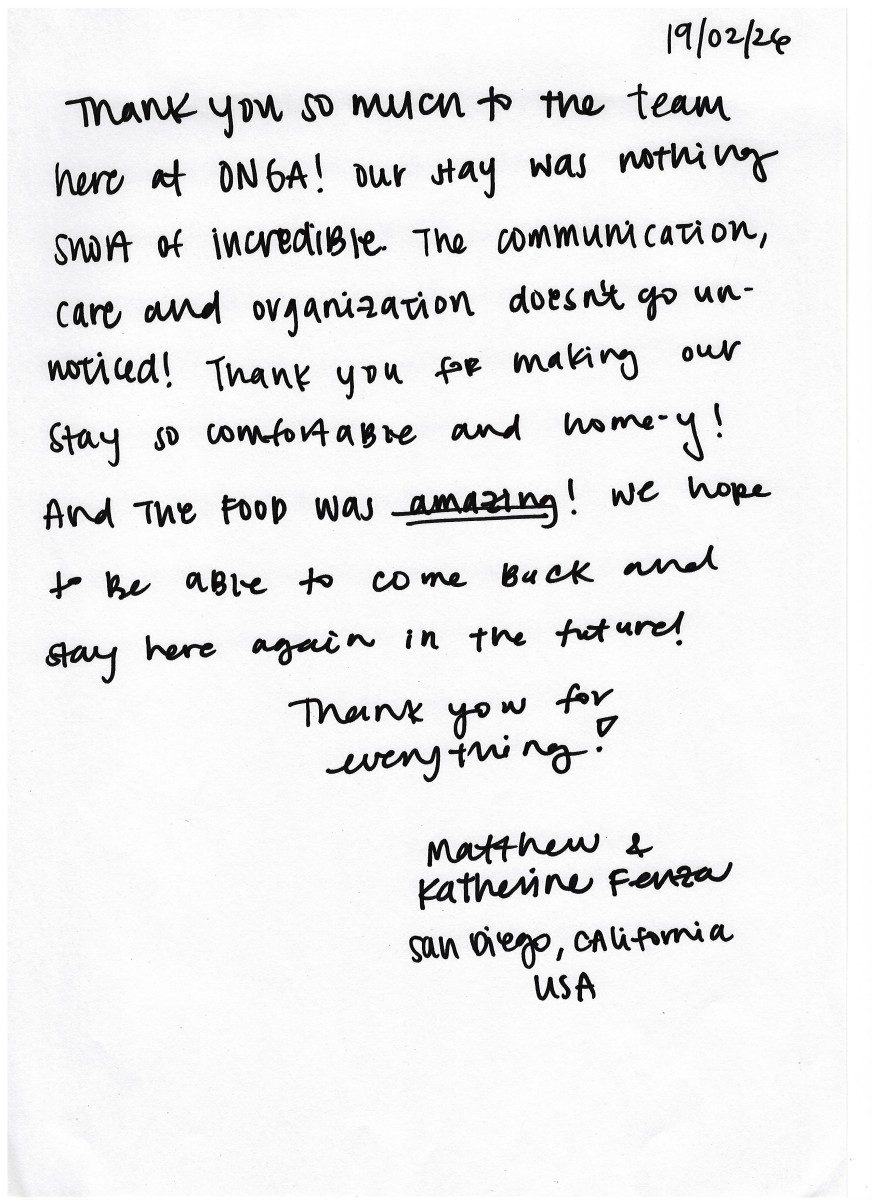 19/02/26
Thank you so much to the team
here at ONGA! Our stay was nothing
short of incredible. The communication,
care and organization doesn't go un-
noticed! Thank you for making our
stay so comfortable and home-y!
And the food was amazing! We hope
to be able to come back and
stay here again in the future!
Thank you for
everything!
Matthew &
Katherine Fenza
San Diego, California
USA